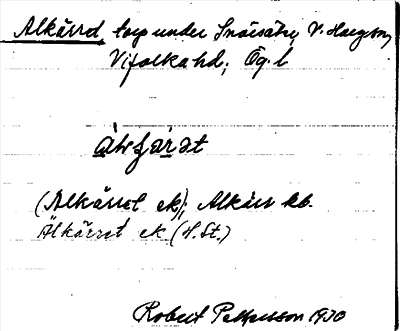 Alkärret torp under Snörsäter, V. Harg sn,
Vifolka hd; Ög. l.
(Alkärret ek); Alkärr kb.
Älkärret ek. (H.St.)
Robert Pettersson 1930